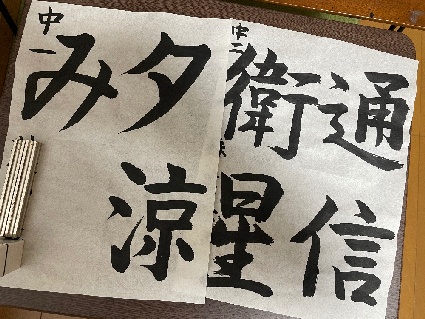 通信
衛星
中二
夕涼
み
中一